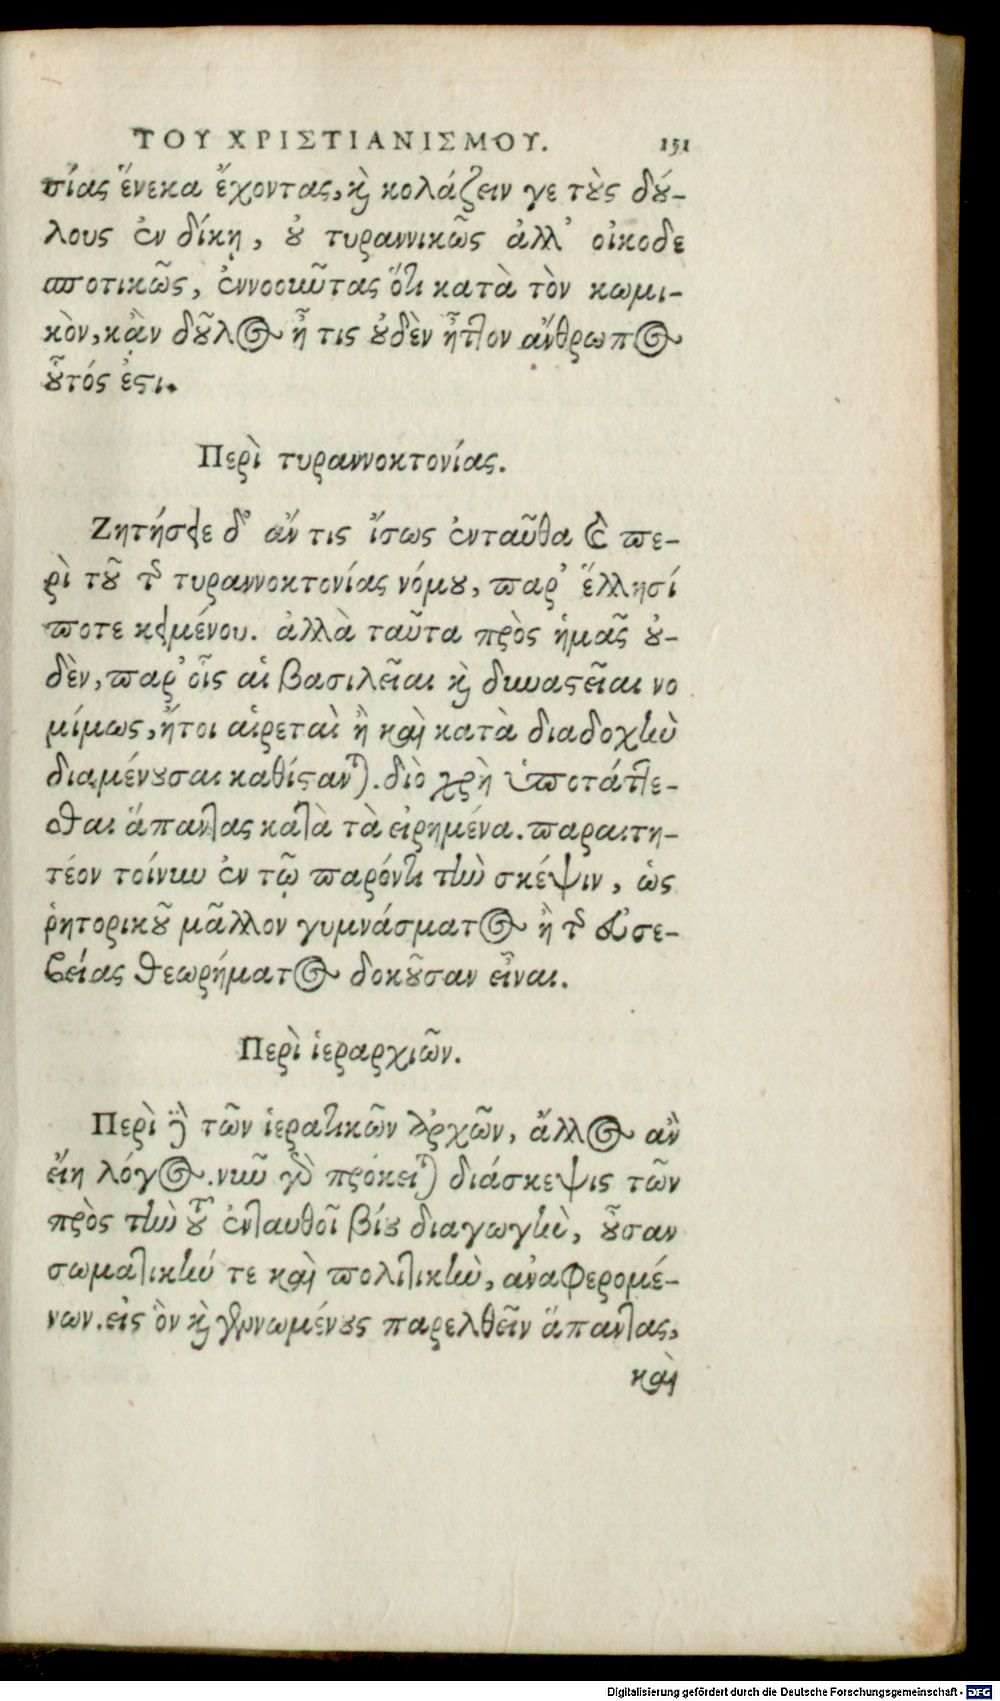 ΤΟΥ ΧΡΙΣΤΙΑΝΙΣΜΟΥ. 151
σίας ἕνεκα ἔχοντας, καὶ κολάζειν γε τοὺς δού-
λους ἐν δίκῃ, οὐ τυραννικῶς ἀλλ' οἰκοδε
σποτικῶς, ἐννοοιῶτας ὅτι κατὰ τὸν κωμι-
κὸν, κᾂν δοῦλος ᾖ τις οὐδὲν ἧττον ἄνθρωπος
οὗτός ἐστι.
Περὶ τυραννοκτονίας.
Ζητήσειε δ' ἄν τις ἴσως ἐνταῦθα καὶ πε-
ρὶ τοῦ τῆς τυραννοκτονίας νόμου, παρ' ἕλλησί
ποτε κειμένου. ἀλλὰ ταῦτα πρὸς ἡμᾶς οὐ-
δὲν, παρ' οἷς αἱ βασιλεῖαι καὶ δυναστεῖαι νο
μίμως, ἤτοι αἱρεταὶ ἢ καὶ κατὰ διαδοχὴν
διαμένουσαι καθίστανται. διὸ χρὴ ὑποτάττε-
σθαι ἅπαντας κατὰ τὰ εἰρημένα. παραιτη-
τέον τοίνυν ἐν τῷ παρόντι τὴν σκέψιν, ὡς
ῥητορικοῦ μᾶλλον γυμνάσματος ἢ τῆς εὐσε-
βείας θεωρήματος δοκοῦσαν εἶναι.
Περὶ ἱεραρχιῶν.
Περὶ δὲ τῶν ἱερατικῶν ἀρχῶν, ἄλλος ἂν
εἴη λόγος. νῦν γὰρ πρόκειται διάσκεψις τῶν
πρὸς τὴν τοῦ ἐνταυθοῖ βίου διαγωγὴν, οὖσαν
σωματικήν τε καὶ πολιτικὴν, ἀναφερομέ-
νων. εἰς ὃν καὶ γυμνωμένους παρελθεῖν ἅπαντας,
καὶ
Digitalisierung gefördert durch die Deutsche Forschungsgemeinschaft - DFG